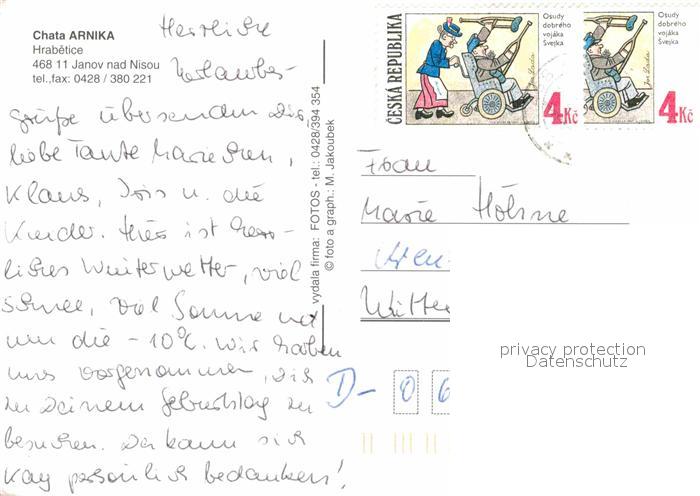 Chata ARNIKA
Hrabětice
468 11 Janov nad Nisou
tel.,fax: 0428 / 380 221
Herzliche
Urlaubs-
grüße übersenden wir,
liebe Tante Mariechen,
Klaus, Iris u. die
Kinder. Hier ist herr-
liches Winterwetter, viel
Schnee, viel Sonne und
um die -10°C. Wir haben
uns vorgenommen, dich
zu Deinem Geburtstag zu
besuchen. Da kann sich
Kay persönlich bedanken!
vydala firma: FOTOS - tel.: 0428/394 354
© foto a graph.: M. Jakoubek
ČESKÁ REPUBLIKA
Osudy
dobrého
vojáka
Švejka
Jos. Lada
4Kč
Osudy
dobrého
vojáka
Švejka
Jos. Lada
4Kč
Frau
Marie
D- 0 6
privacy protection
Datenschutz